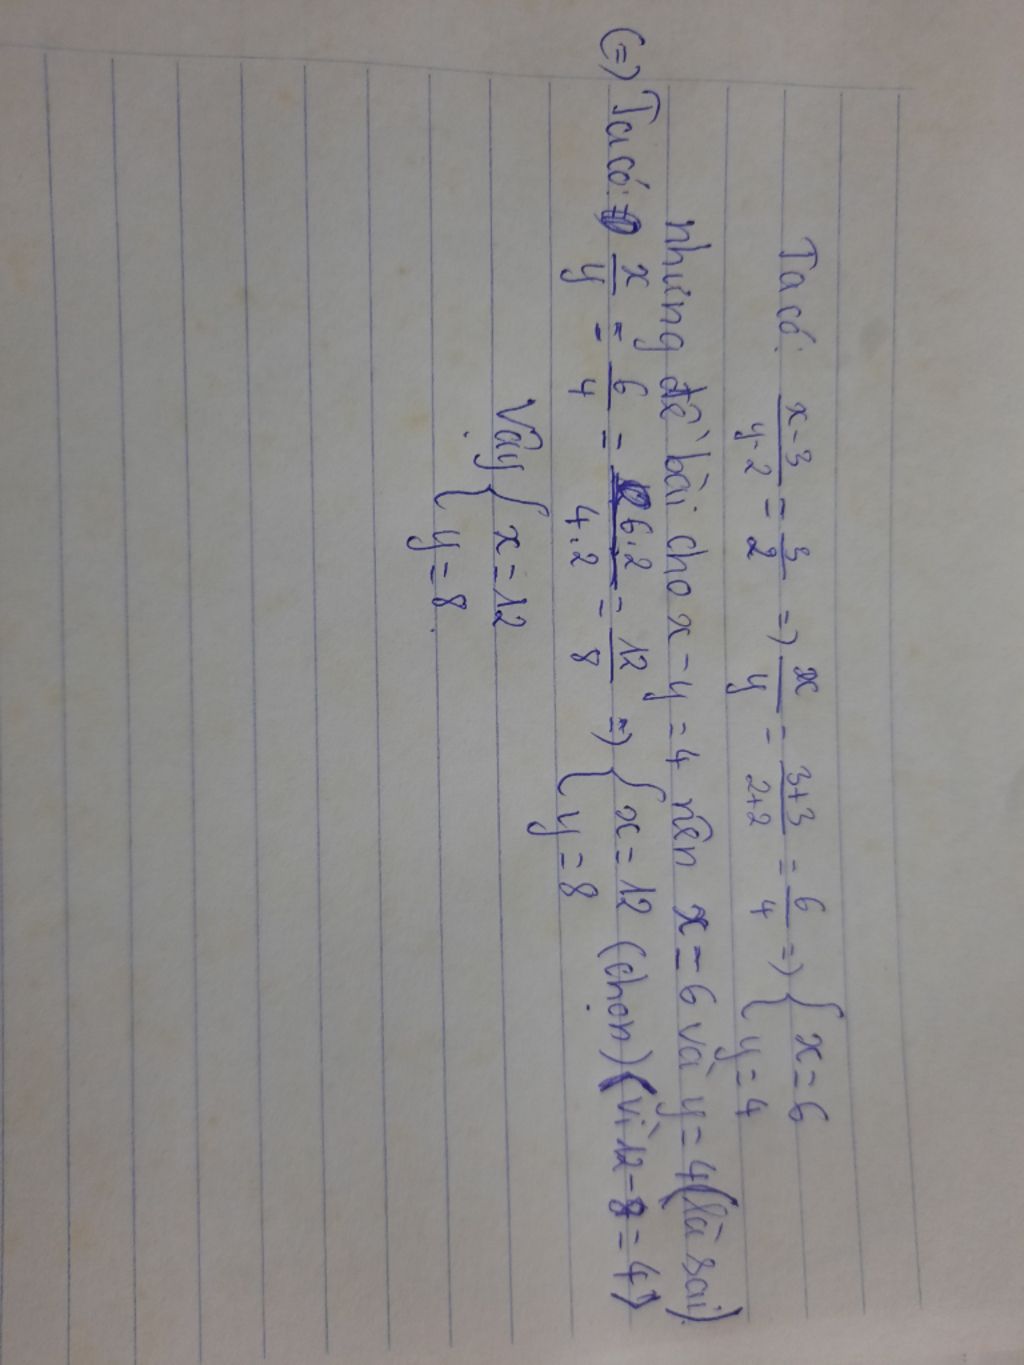 Ta có: x-3/y-2 = 3/2 => x/y = 3+3/2+2 = 6/4 => { x=6
{ y=4
nhưng đề bài cho x-y=4 nên x=6 và y=4 (là sai)
(=) Ta có: x/y = 6/4 = 6.2/4.2 = 12/8 => { x=12 (chọn) (vì 12-8=4)
{ y=8
Vậy { x=12
{ y=8.